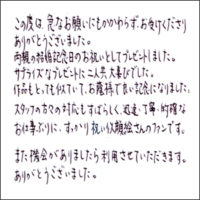 この度は、急なお願いにもかかわらず、お受けくださり
ありがとうございました。
両親の結婚記念日のお祝いとしてプレゼントしました。
サプライズなプレゼントに二人共大喜びでした。
作品もとっても似ていて、お蔭様で良い記念になりました。
スタッフの方々の対応もすばらしく、迅速・丁寧・的確な
お仕事ぶりに、すっかり祝い似顔絵さんのファンです。
また機会がありましたら利用させていただきます。
ありがとうございました。